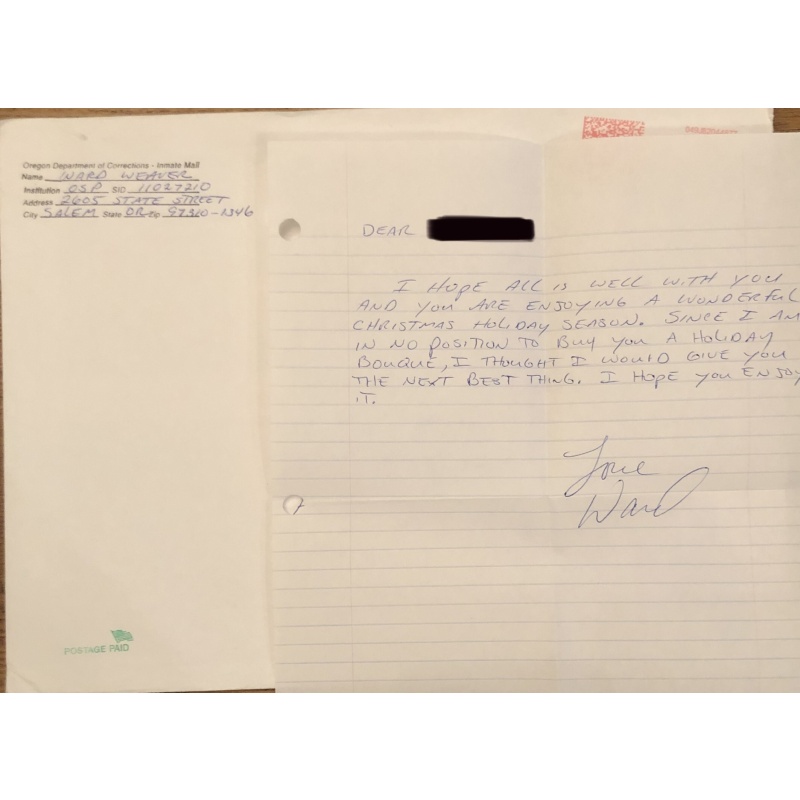 Oregon Department of Corrections - Inmate Mail
Name WARD WEAVER
Institution OSP SID 11027210
Address 2605 STATE STREET
City SALEM State OR Zip 97310-1346
DEAR
I HOPE ALL IS WELL WITH YOU
AND YOU ARE ENJOYING A WONDERFUL
CHRISTMAS HOLIDAY SEASON. SINCE I AM
IN NO POSITION TO BUY YOU A HOLIDAY
BOUQUE, I THOUGHT I WOULD GIVE YOU
THE NEXT BEST THING. I HOPE YOU ENJOY
IT.
Love
Ward
POSTAGE PAID